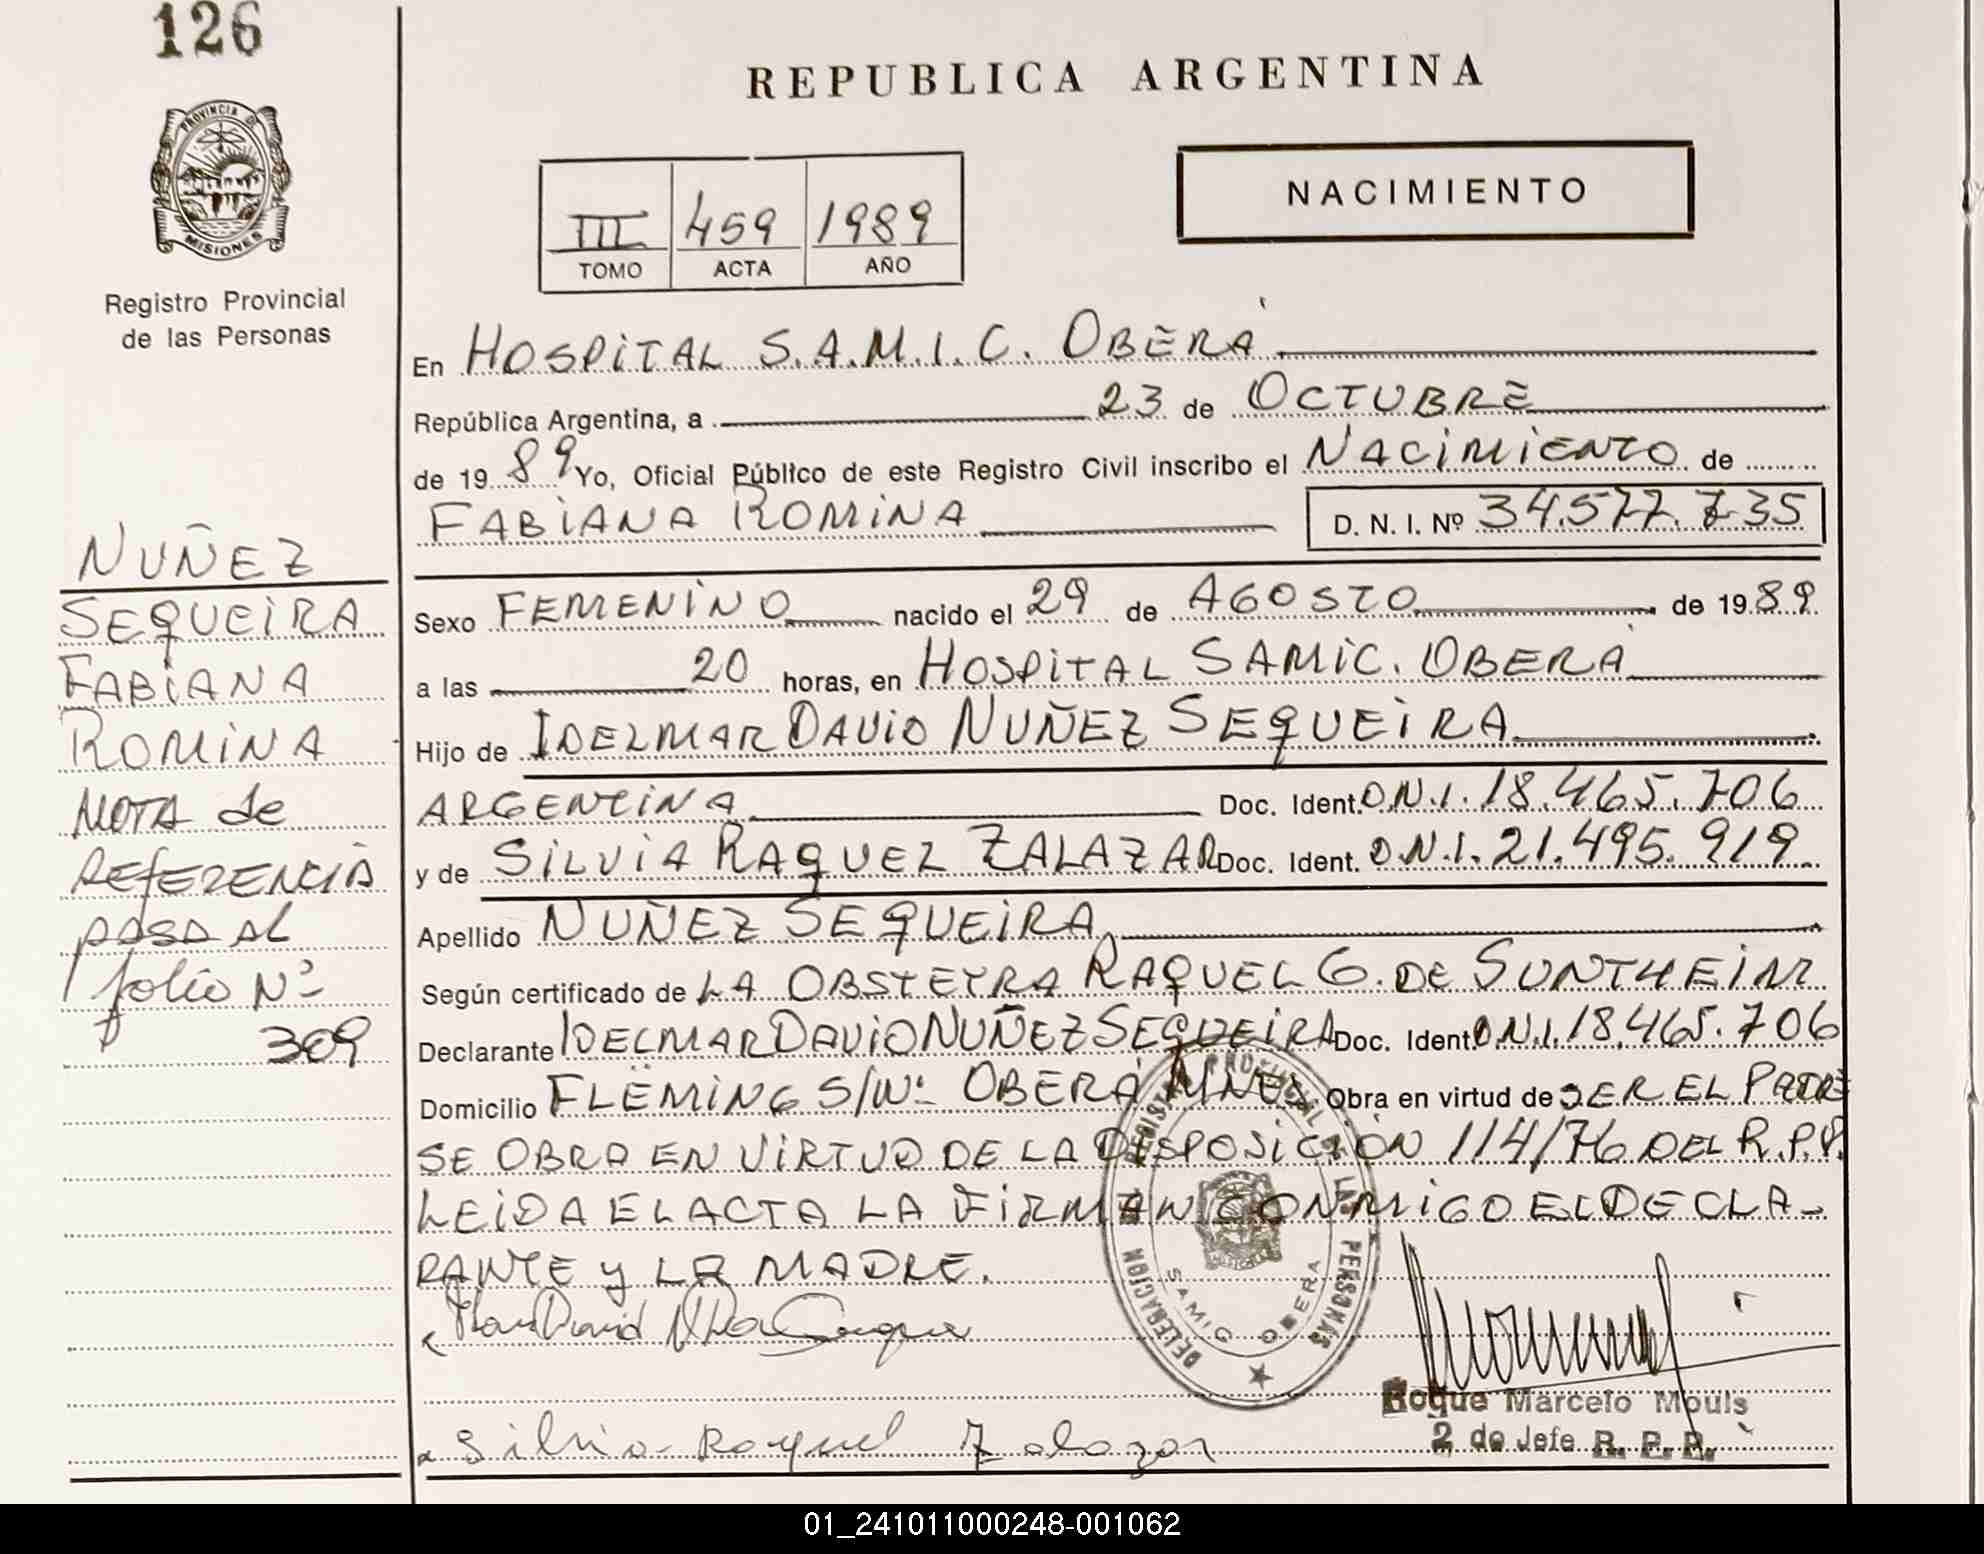 126
PROVINCIA DE
MISIONES
Registro Provincial
de las Personas
NUÑEZ
SEQUEIRA
FABIANA
ROMINA
NOTA de
REFERENCIA
PASA AL
folio Nº
309
REPUBLICA ARGENTINA
NACIMIENTO
III 459 1989
TOMO ACTA AÑO
En HOSPITAL S.A.M.I.C. OBERÁ
República Argentina, a 23 de OCTUBRE
de 19 89 Yo, Oficial Público de este Registro Civil inscribo el NACIMIENTO de
FABIANA ROMINA D. N. I. Nº 34.577.735
Sexo FEMENINO nacido el 29 de AGOSTO de 19 89
a las 20 horas, en HOSPITAL SAMIC. OBERÁ
Hijo de IDELMAR DAVID NUÑEZ SEQUEIRA
ARGENTINA Doc. Ident. D.N.I. 18.465.706
y de SILVIA RAQUEL ZALAZAR Doc. Ident. D.N.I. 21.495.919
Apellido NUÑEZ SEQUEIRA
Según certificado de LA OBSTETRA RAQUEL G. DE SUNTHEIM
Declarante IDELMAR DAVID NUÑEZ SEQUEIRA Doc. Ident. D.N.I. 18.465.706
Domicilio FLEMING S/Nº OBERÁ MNES Obra en virtud de SER EL PADRE
SE OBRA EN VIRTUD DE LA DISPOSICIÓN 114/76 DEL R.P.P.
LEIDA EL ACTA LA FIRMAN CONMIGO EL DECLA-
RANTE y LA MADRE.
REGISTRO PROVINCIAL DE LAS PERSONAS
DELEGACION
SAMIC OBERA
David
Silvia Raquel Zalazar
Roque Marcelo Mouls
2 do Jefe R. P. P.
01_241011000248-001062